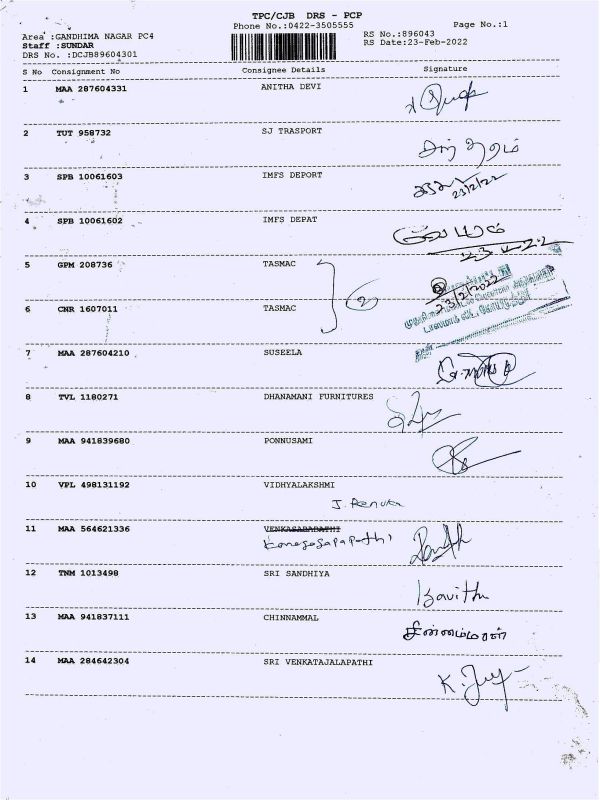 TPC/CJB DRS - PCP
Phone No.:0422-3505555
Page No.:1
Area :GANDHIMA NAGAR PC4
RS No.:896043
Staff :SUNDAR
RS Date:23-Feb-2022
DRS No. :DCJB89604301
S No Consignment No Consignee Details Signature
1 MAA 287604331 ANITHA DEVI
2 TUT 958732 SJ TRASPORT
3 SPB 10061603 IMFS DEPORT
23/2/22
4 SPB 10061602 IMFS DEPAT
5 GPM 208736 TASMAC
23/2/2022
6 CNR 1607011 TASMAC
7 MAA 287604210 SUSEELA
8 TVL 1180271 DHANAMANI FURNITURES
9 MAA 941839680 PONNUSAMI
10 VPL 498131192 VIDHYALAKSHMI
J. Renuka
11 MAA 564621336 VENKASABAPATHI
Kanagasapapathi
12 TNM 1013498 SRI SANDHIYA
Kavitha
13 MAA 941837111 CHINNAMMAL
சின்னம்மாள்
14 MAA 284642304 SRI VENKATAJALAPATHI